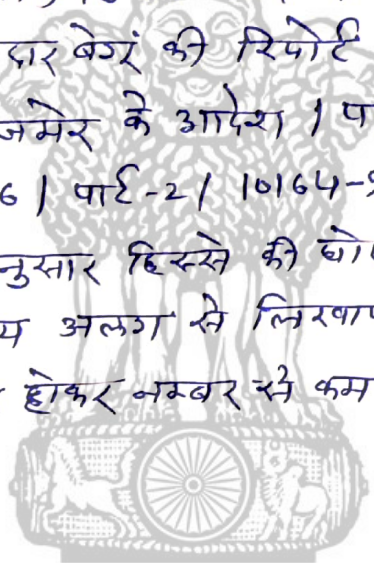 दार बेगूं की रिपोर्ट
जमेर के आदेश । प
6 | पार्ट-2 | 10164-9
नुसार हिस्से की घो
य अलग से लिखवा
होकर नम्बर से कम